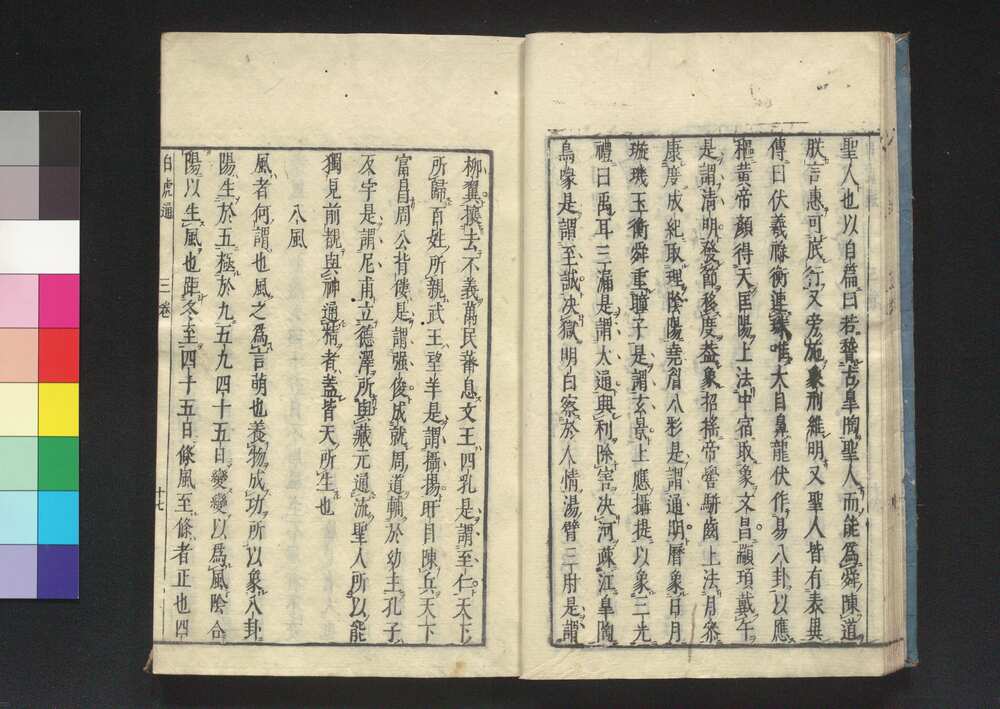 聖人也以自篇曰若稽古皐陶聖人而能爲舜陳道
朕言惠可底行又旁施象刑維明又聖人皆有表異
傳曰伏羲祿衡連珠唯大目鼻龍伏作易八卦以應
樞黃帝顏得天匡陽上法中宿取象文昌顓頊戴午
是謂淸明發節移度蓋象招搖帝嚳騈齒上法月參
康度成紀取理陰陽堯眉八彩是謂通明曆象日月
璇璣玉衡舜重瞳子是謂玄景上應攝提以象三光
禮曰禹耳三漏是謂大通興利除害决河疏江皐陶
鳥喙是謂至誠决獄明白察於人情湯臂三肘是謂
柳翼攘去不義萬民蕃息文王四乳是謂至仁天下
所歸百姓所親武王望羊是謂攝揚盱目陳兵天下
富昌周公背僂是謂强俊成就周道輔於幼主孔子
反宇是謂尼甫立德澤所興藏元通流聖人所以能
獨見前覩與神通精者蓋皆天所生也
八風
風者何謂也風之爲言萌也養物成功所以象八卦
陽生於五極於九五九四十五日變變以爲風陰合
陽以生風也距冬至四十五日條風至條者正也四
白虎通
三卷
十七